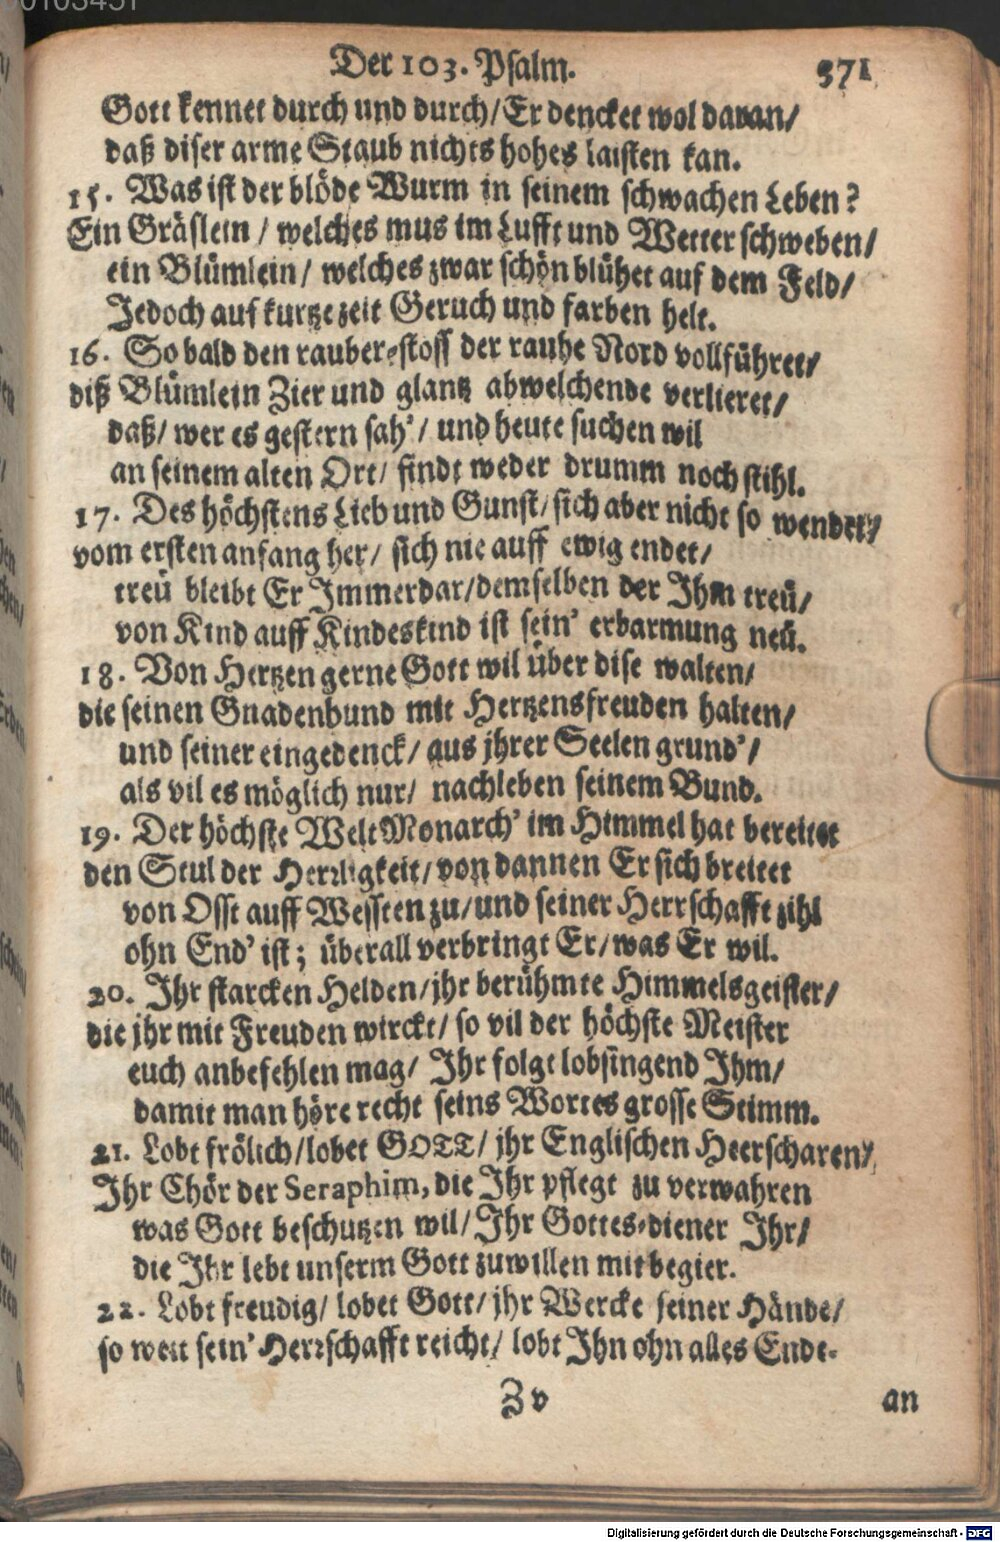 Der 103. Psalm. 371
Gott kennet durch und durch/Er dencket wol daran/
daß diser arme Staub nichts hohes laisten kan.
15. Was ist der blöde Wurm in seinem schwachen Leben?
Ein Gräslein / welches mus im Lufft und Wetter schweben/
ein Blümlein/ welches zwar schön blühet auf dem Feld/
Jedoch auf kurtze zeit Geruch und farben helt.
16. So bald den rauber-stoss der rauhe Nord vollführet/
diß Blümlein Zier und glantz abwelchende verlieret/
daß/ wer es gestern sah'/ und heute suchen wil
an seinem alten Ort/ findt weder drumm noch stihl.
17. Des höchstens Lieb und Gunst/ sich aber nicht so wendet/
vom ersten anfang her/ sich nie auff ewig endet/
treü bleibt Er Immerdar/demselben der Ihm treü/
von Kind auff Kindeskind ist sein' erbarmung neü.
18. Von Hertzen gerne Gott wil über dise walten/
die seinen Gnadenbund mit Hertzensfreuden halten/
und seiner eingedenck/ aus jhrer Seelen grund'/
als vil es möglich nur/ nachleben seinem Bund.
19. Der höchste Welt Monarch' im Himmel hat bereitet
den Stul der Herrligkeit/von dannen Er sich breitet
von Osst auff Wessten zu/und seiner Herrschafft zihl
ohn End' ist; überall verbringt Er/was Er wil.
20. Ihr starcken Helden/jhr berühmte Himmelsgeister/
die jhr mit Freuden wirckt/ so vil der höchste Meister
euch anbefehlen mag/ Ihr folgt lobsingend Ihm/
damit man höre recht seins Wortes grosse Stimm.
21. Lobt frölich/lobet GOTT/ jhr Englischen Heerscharen/
Ihr Chör der Seraphim, die Ihr pflegt zu verwahren
was Gott beschutzen wil/ Ihr Gottes-diener Ihr/
die Ihr lebt unserm Gott zuwillen mit begier.
22. Lobt freudig/ lobet Gott/ jhr Wercke seiner Hände/
so weit sein' Herrschafft reicht/ lobt Ihn ohn alles Ende.
Z v an
Digitalisierung gefördert durch die Deutsche Forschungsgemeinschaft - DFG